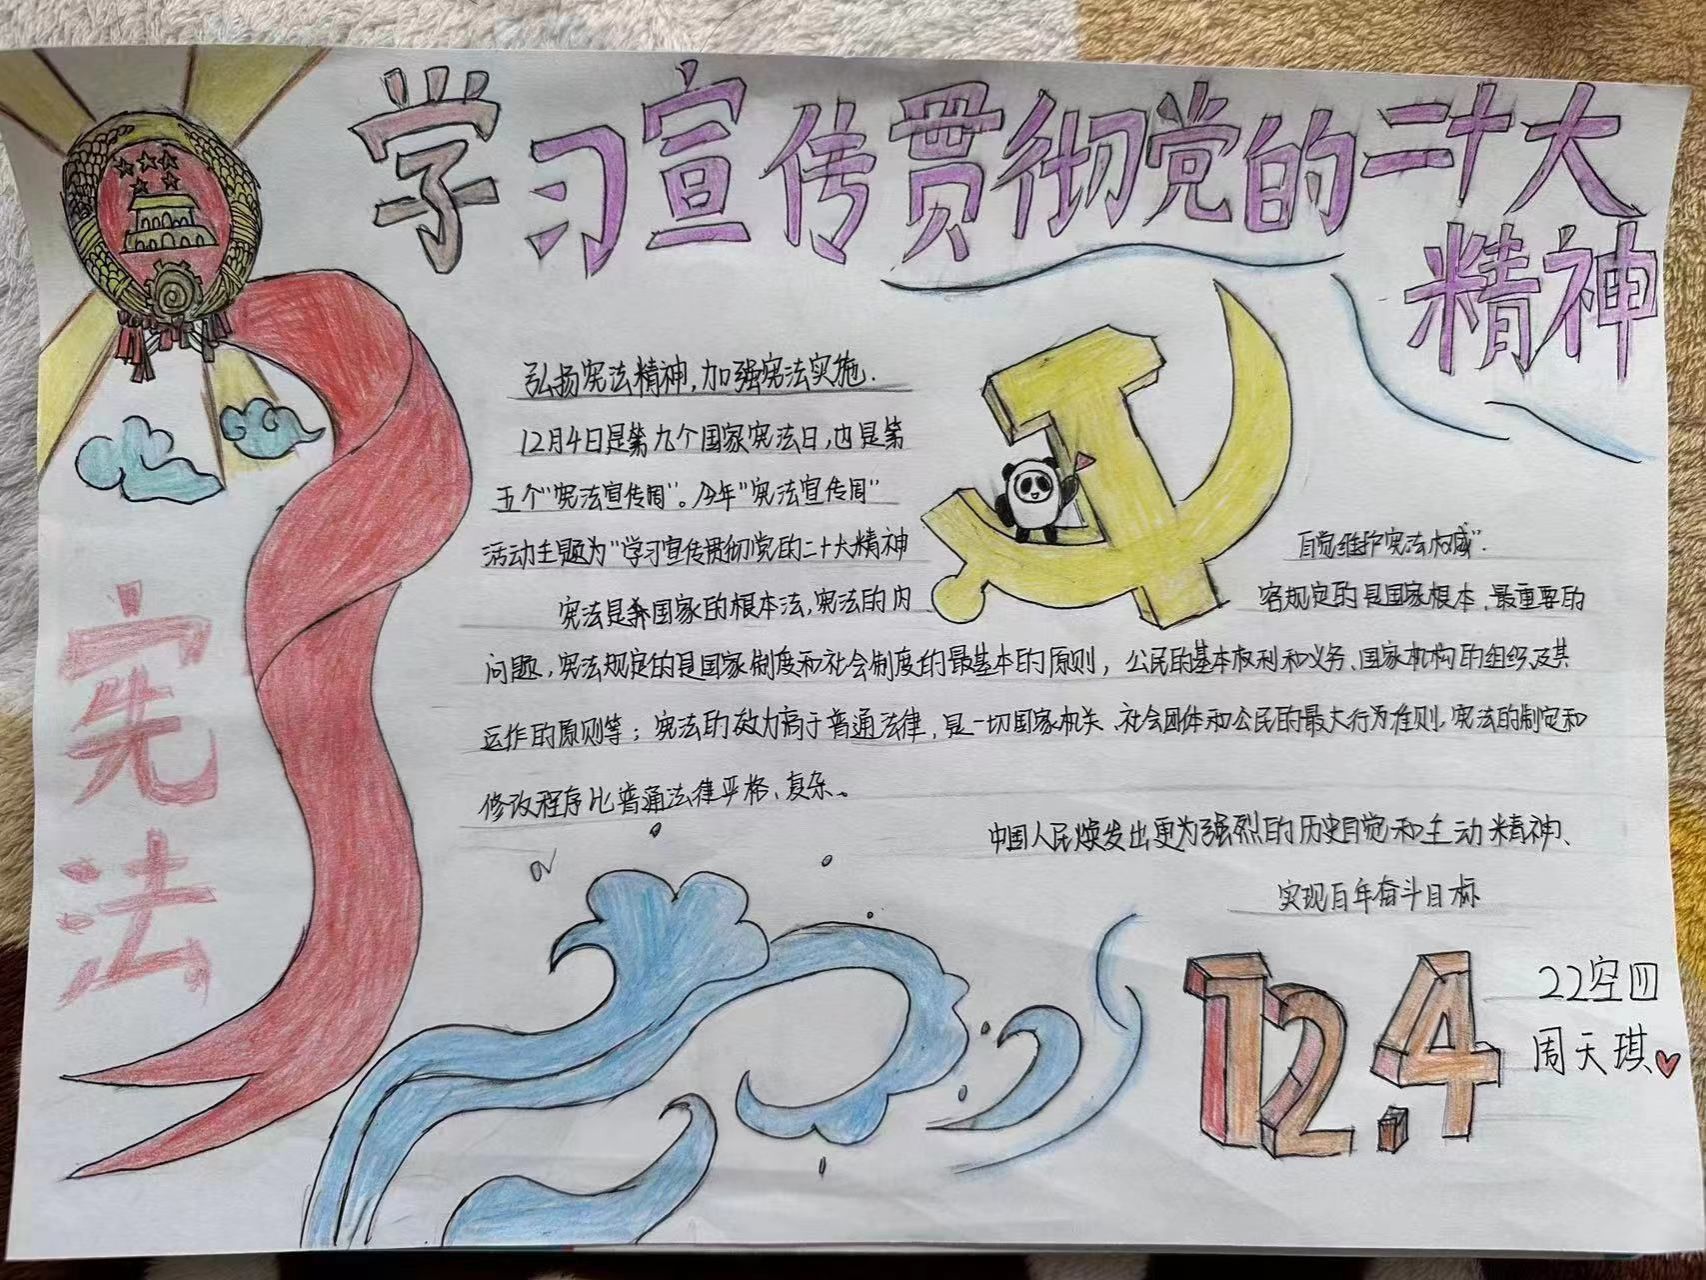 学习宣传贯彻党的二十大
精神
弘扬宪法精神,加强宪法实施.
12月4日是第九个国家宪法日,也是第
五个"宪法宣传周"。今年"宪法宣传周"
活动主题为"学习宣传贯彻党的二十大精神
自觉维护宪法权威".
宪法是我国国家的根本法,宪法的内
容规定的是国家根本、最重要的
问题,宪法规定的是国家制度和社会制度的最基本的原则,公民的基本权利和义务、国家机构的组织及其
运作的原则等;宪法的效力高于普通法律,是一切国家机关、社会团体和公民的最大行为准则,宪法的制定和
修改程序比普通法律严格、复杂。
中国人民焕发出更为强烈的历史自觉和主动精神、
实现百年奋斗目标
宪法
12.4
22空四
周天琪